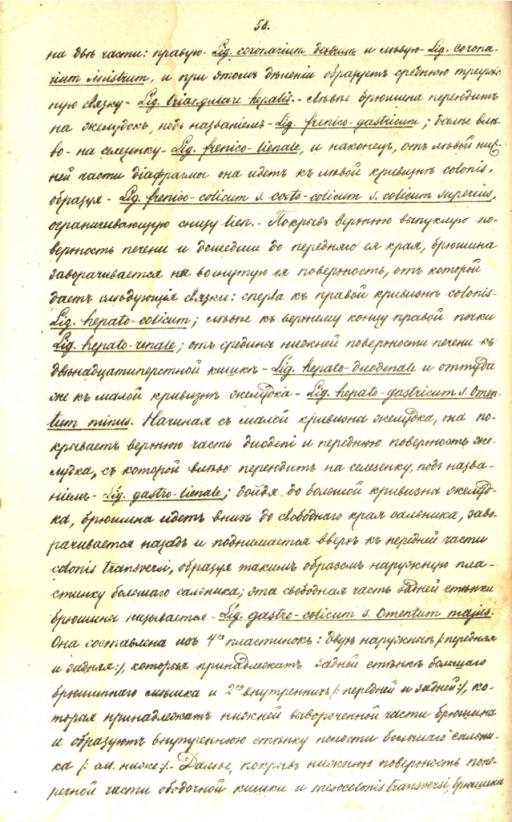 58.
на двѣ части: правую- Lig. coronarium dextrum и лѣвую- Lig. corona-
rium sinistrum, и при этомъ дѣленіи образуетъ среднюю треуголь-
ную связку- Lig. triangulare hepatis.- Лѣвѣе брюшина переходитъ
на желудокъ, подъ названіемъ- Lig. frenico-gastricum; далѣе влѣ-
во- на селезенку- Lig. frenico-lienale, и наконецъ, отъ лѣвой ниж-
ней части діафрагмы она идетъ къ лѣвой кривизнѣ colonis,
образуя- Lig. frenico-colicum s. costo-colicum s. colicum superius,
ограничивающую снизу lien.- Покрывъ верхнюю выпуклую по-
верхность печени и дошедши до передняго ея края, брюшина
заворачивается на вогнутую ея поверхность, отъ которой
даетъ слѣдующія связки: сперва къ правой кривизнѣ colonis-
Lig. hepato-colicum; лѣвѣе къ верхнему концу правой почки
Lig. hepato-renale; отъ средины нижней поверхности печени къ
двѣнадцатиперстной кишкѣ- Lig. hepato-duodenale и оттуда
же къ малой кривизнѣ желудка- Lig. hepato-gastricum s. Omen-
tum minus. Начиная съ малой кривизны желудка, она по-
крываетъ верхнюю часть duodeni и переднюю поверхность же-
лудка, съ которой влѣво переходитъ на селезенку, подъ назва-
ніемъ- Lig. gastro-lienale; дойдя до большой кривизны желуд-
ка, брюшина идетъ внизъ до свободнаго края сальника, заво-
рачивается назадъ и поднимается вверхъ къ передней части
colonis transversi, образуя такимъ образомъ наружную пла-
стинку большаго сальника; эта свободная часть задней стѣнки
брюшины называется- Lig. gastro-colicum s. Omentum majus.
Она составлена изъ 4хъ пластинокъ: двухъ наружныхъ /: передняя
и задняя :/, которыя принадлежатъ задней стѣнкѣ большаго
брюшиннаго мѣшка и 2хъ внутреннихъ /: передней и задней :/, ко-
торыя принадлежатъ нижней завороченной части брюшины
и образуютъ внутреннюю стѣнку полости большаго сальни-
ка /: см. ниже :/. Далѣе, покрывъ нижнюю поверхность попе-
речной части ободочной кишки и mesocolonis transversi, брюшина